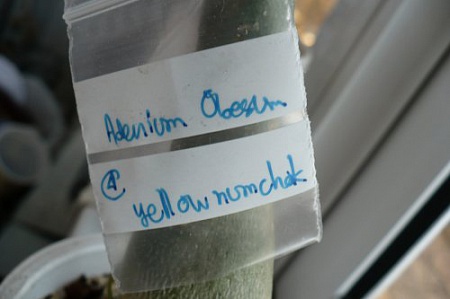 Adenium Obesum
yellow numchok